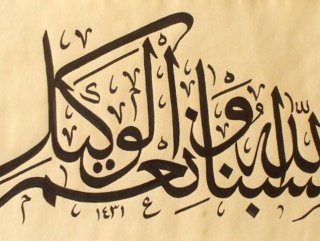 سبنا الله ونعم الوكيل
١٤٣١